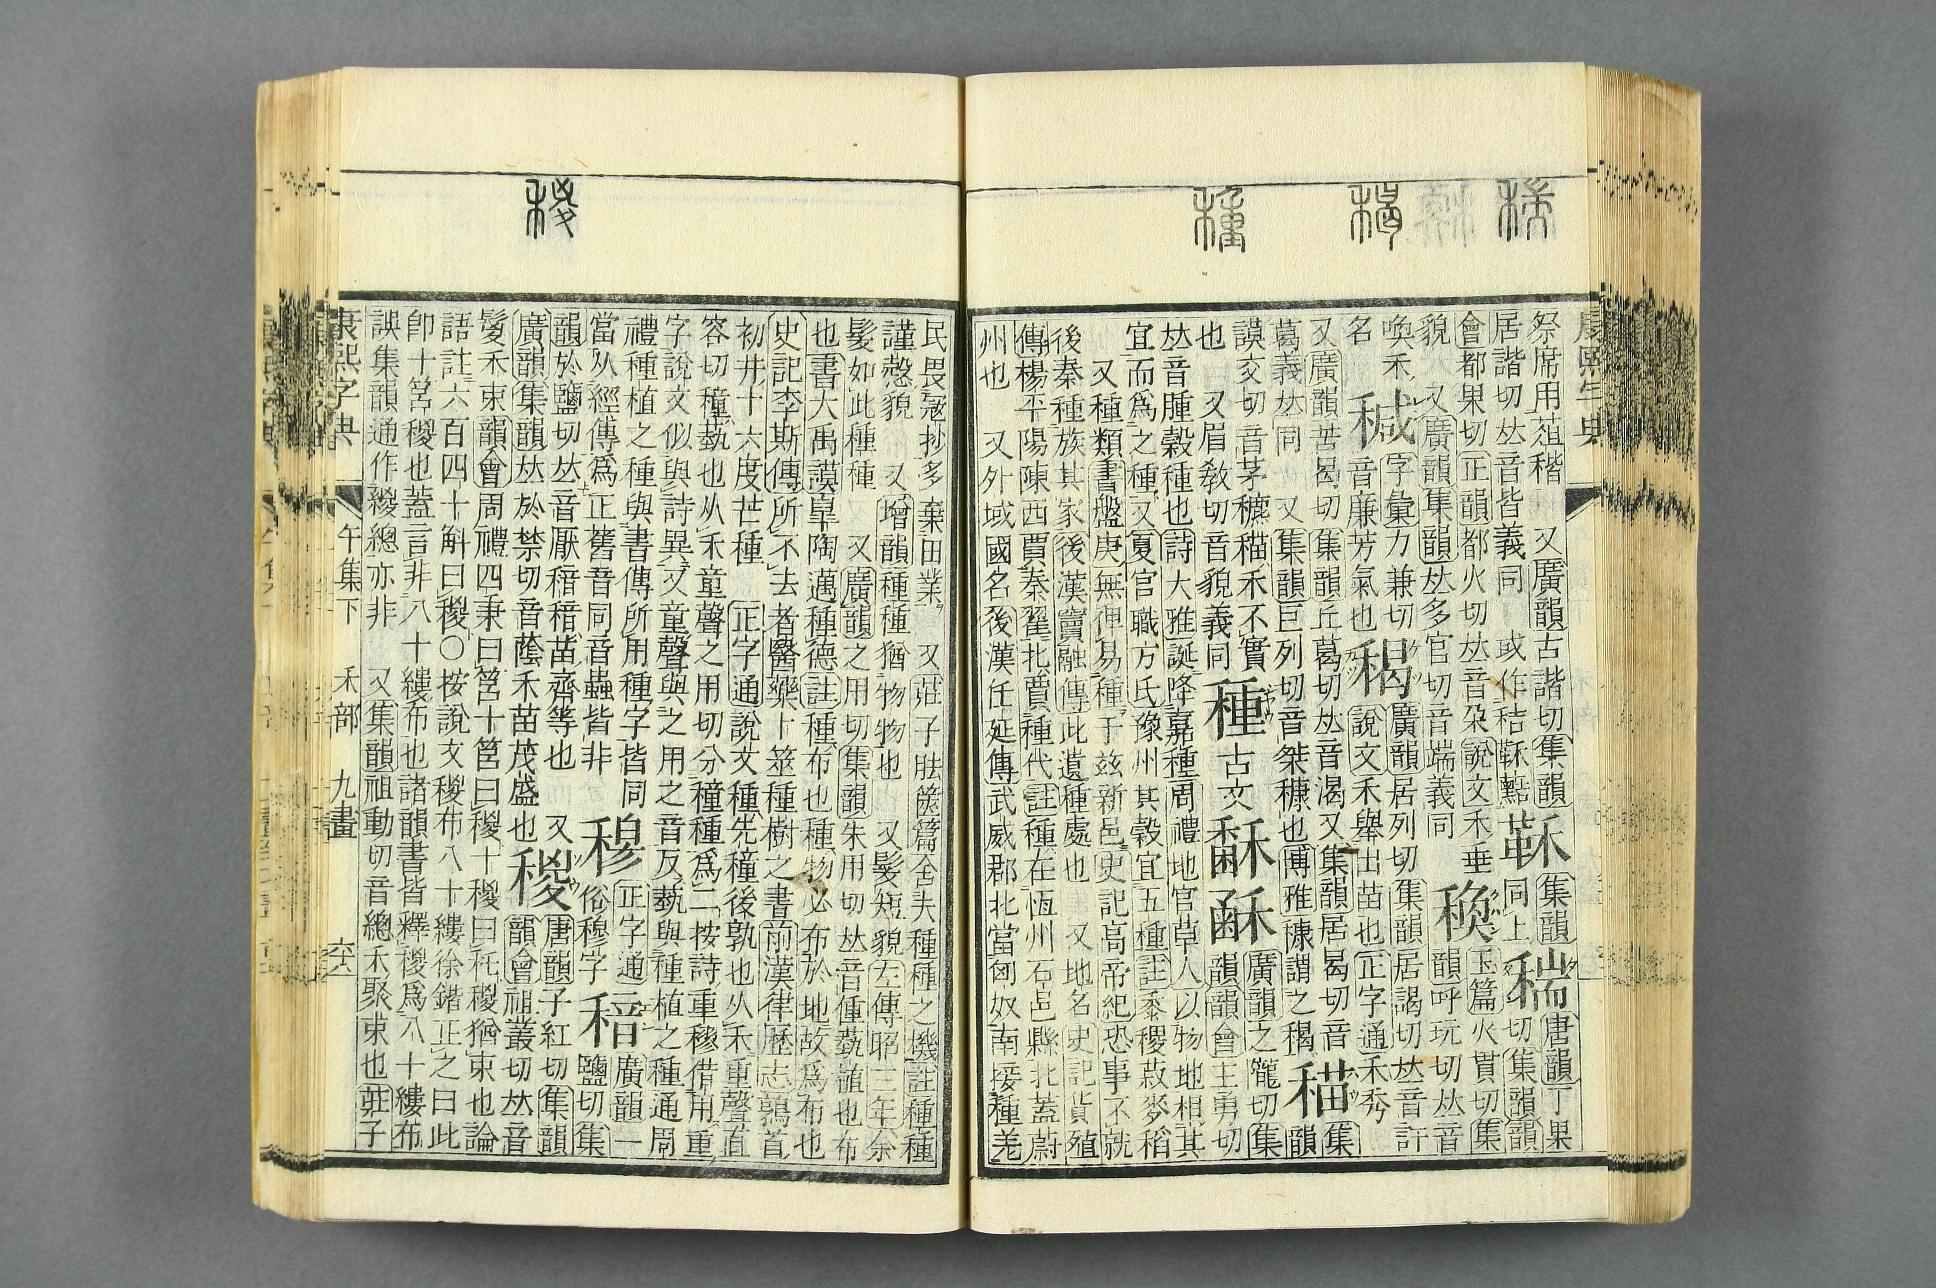 祭席用葅稭 又廣韻古諧切集韻
居諧切𠀤音皆義同 或作秸鞂
鞂
集韻
同上
唐韻丁果
切集韻韻
會都果切正韻都火切𠀤音朶說文禾垂
貌 又廣韻集韻𠀤多官切音端義同
玉篇火貫切集
韻呼玩切𠀤音
喚禾
名
字彙力兼切
音廉芳氣也
䅥
廣韻居列切集韻居謁切𠀤音訐
說文禾舉出苗也正字通禾秀
又廣韻苦曷切集韻丘葛切𠀤音渴又集韻居曷切音
葛義𠀤同 又集韻巨列切音桀穅也博雅穅謂之䅥
䅦
集
韻
謨交切音茅穮䅦禾不實
也 又眉敎切音貌義同
種
古文
廣韻之隴切集
韻韻會主勇切
𠀤音腫穀種也詩大雅誕降嘉種周禮地官草人以物地相其
宜而爲之種 又夏官職方氏豫州其穀宜五種註黍稷菽麥稻
又種類書盤庚無俾易種于兹新邑史記高帝紀恐事不就
後秦種族其家後漢竇融傳此遺種處也 又地名史記貨殖
傳楊平陽陳西賈秦翟北賈種代註種在恆州石邑縣北蓋蔚
州也 又外域國名後漢任延傳武威郡北當匈奴南接種羌
民畏寇抄多棄田業 又莊子胠篋篇舍夫種種之機註種種
謹慤貌 又增韻種種猶物物也 又髮短貌左傳昭三年余
髮如此種種 又廣韻之用切集韻朱用切𠀤音偅蓺植也布
也書大禹謨皐陶邁種德註種布也種物必布於地故爲布也
史記李斯傳所不去者醫藥卜筮種樹之書前漢律歷志鶉首
初井十六度芒種 正字通說文種先穜後孰也从禾重聲直
容切穜蓺也从禾童聲之用切分穜種爲二按詩重穋借用重
字說文似與詩異文童聲與之用之音反蓺與種植之種通周
禮種植之種與書傳所用種字皆同
當从經傳爲正舊音同音蟲皆非
穆
正字通
俗穆字
稖
廣韻一
鹽切集
韻於鹽切𠀤音厭稖稖苗齊等也 又
廣韻集韻𠀤於禁切音蔭禾苗茂盛也
稯
唐韻子紅切集韻
韻會祖叢切𠀤音
鬉禾束韻會周禮四秉曰筥十筥曰稯十稯曰秅稯猶束也論
語註六百四十斛曰稯○按說文稯布八十縷徐鍇正之曰此
卽十筥稯也蓋言非八十縷布也諸韻書皆釋稯爲八十縷布
誤集韻通作緵總亦非 又集韻祖動切音總禾聚束也莊子
康熙字典
午集下 禾部 九畫
六